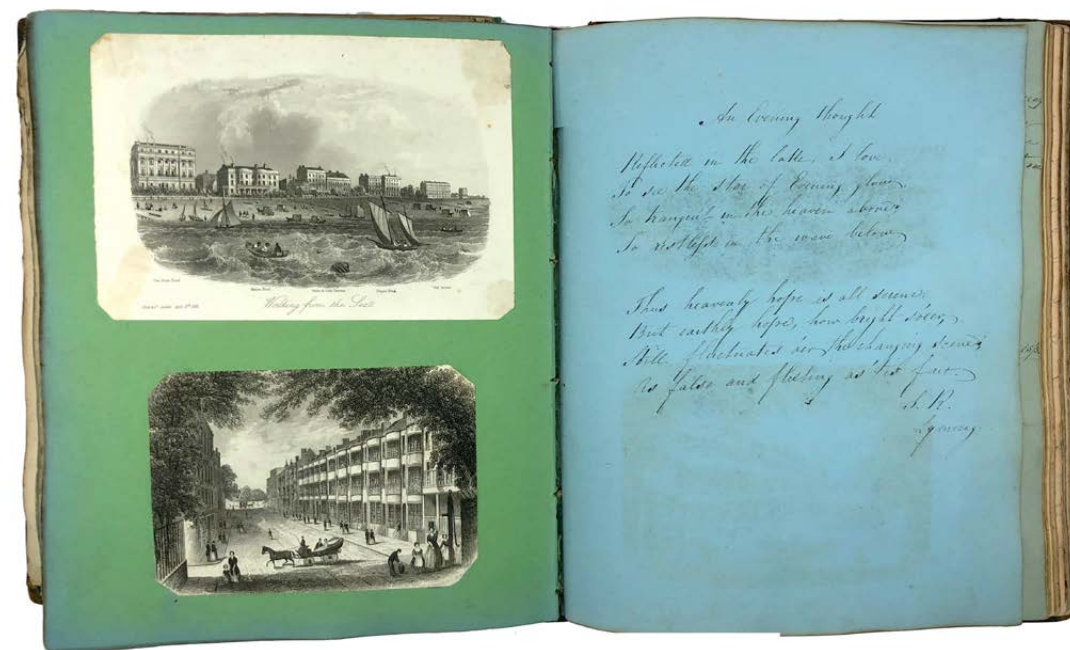 Worthing from the Sea
An Evening thought
Reflected in the lake, I love
To see the star of Evening glow
So tranquil in the heaven above
So restless in the wave below
Thus heavenly hope is all serene
But earthly hope, how bright soe'er
Still fluctuates o'er the changing scene
As false and fleeting as 'tis fair